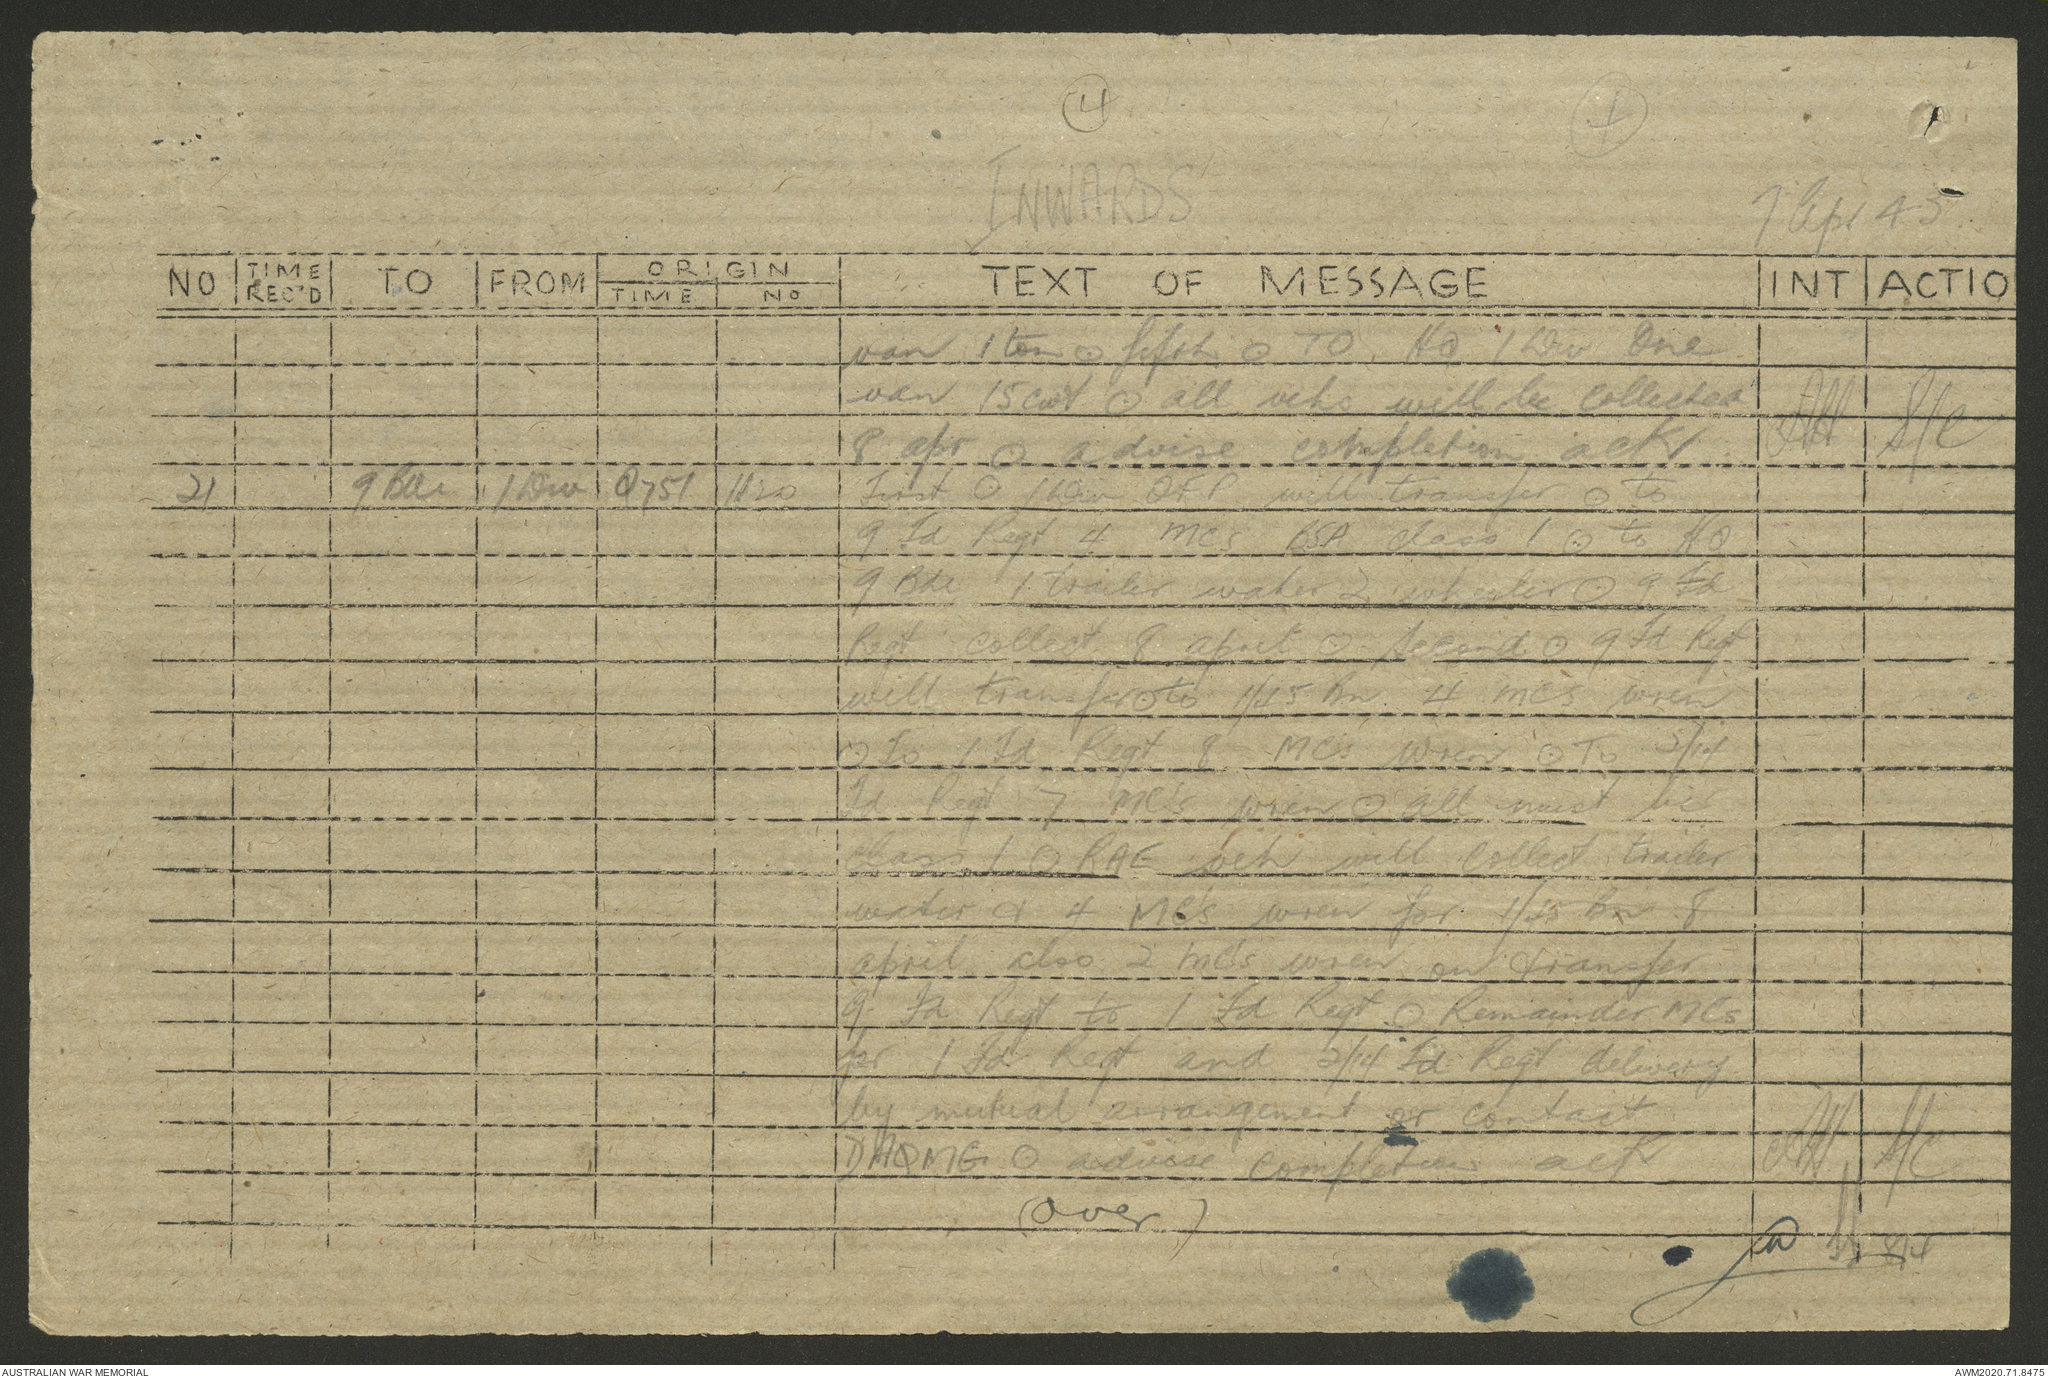 4
1
INWARDS
7 Apr 43
NO TIME REC'D TO FROM ORIGIN TIME NO TEXT OF MESSAGE INT ACTIO
van 1 ton ⊙ fifth ⊙ TO HQ 1 Div One
van 15 cwt ⊙ all vehs will be collected
8 apr ⊙ advise completion ack S/C
21 9 Bde 1 Div Q751 1120 First ⊙ 1 Div OFP will transfer ⊙ to
9 Fd Regt 4 MCs BSA class 1 ⊙ to HQ
9 Bde 1 trailer water 2 wheeler ⊙ 9 Fd
Regt collect 8 april ⊙ Second ⊙ 9 Fd Regt
will transfer ⊙ to 1/45 Bn 4 MCs wren
⊙ To 1 Fd Regt 8 MCs wren ⊙ To 2/14
Fd Regt 7 MC's wren ⊙ all must be
class 1 ⊙ RAE veh will collect trailer
water & 4 MC's wren for 1/45 Bn 8
april also 2 MCs wren on transfer
9 Fd Regt to 1 Fd Regt ⊙ Remainder MCs
for 1 Fd Regt and 2/14 Fd Regt delivery
by mutual arrangement or contact
DAQMG ⊙ advise completion ack S/C
(over)
8/4
AUSTRALIAN WAR MEMORIAL
AWM2020.71.8475